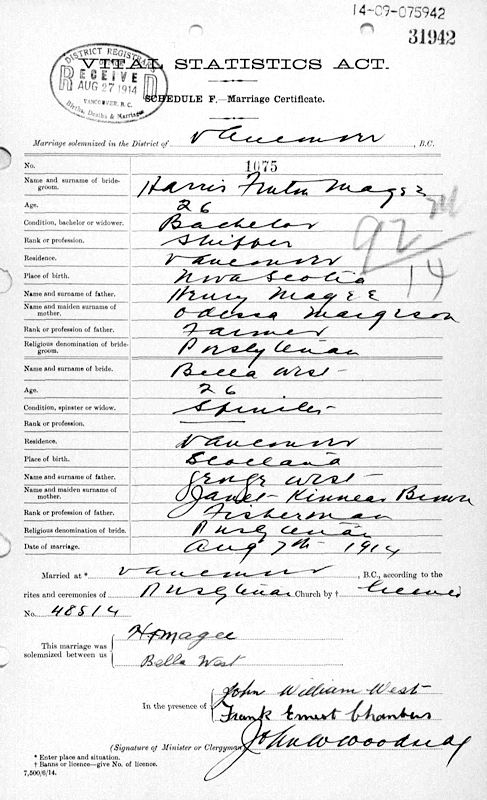 14-09-075942
31942
DISTRICT REGISTRAR
RECEIVED
AUG 27 1914
VANCOUVER, B.C.
Births, Deaths & Marriages
VITAL STATISTICS ACT.
SCHEDULE F.—Marriage Certificate.
Marriage solemnized in the District of Vancouver, B.C.
No. 1075
Name and surname of bridegroom. Harris Magee
Age. 26
Condition, bachelor or widower. Bachelor
Rank or profession. Shipper
Residence. Vancouver
Place of birth. Nova Scotia
Name and surname of father. Henry Magee
Name and maiden surname of mother. Odessa Margeson
Rank or profession of father. Farmer
Religious denomination of bridegroom. Presbyterian
Name and surname of bride. Bella West
Age. 26
Condition, spinster or widow. Spinster
Rank or profession. —
Residence. Vancouver
Place of birth. Scotland
Name and surname of father. George West
Name and maiden surname of mother. Janet Kinnear Brown
Rank or profession of father. Fisherman
Religious denomination of bride. Presbyterian
Date of marriage. Aug 7th 1914
92
14
Married at * Vancouver, B.C., according to the
rites and ceremonies of Presbyterian Church by † license
No. 48514
This marriage was solemnized between us
H F Magee
Bella West
In the presence of
John William West
Frank Ernest Chambers
(Signature of Minister or Clergyman) John W Woodside
* Enter place and situation.
† Banns or licence—give No. of licence.
7,500/6/14.